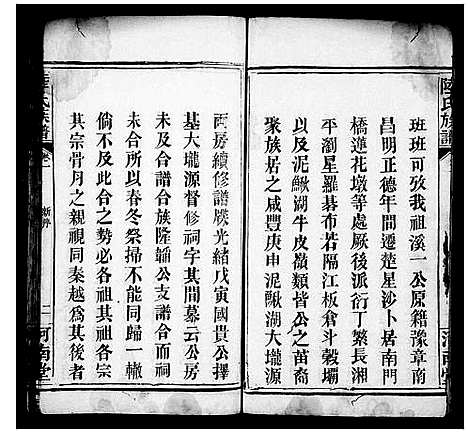 班班可攷我祖溪一公原籍豫章南
昌明正德年間遷楚星沙卜居南門
橋蓮花墩等處厥後派衍丁繁長湘
平瀏星羅碁布若隔江板倉斗穀壩
以及泥鰍湖牛皮嶺類皆公之苗裔
聚族居之咸豐庚申泥鰍湖大壠源
兩房續修譜牒光緒戊寅國貴公擇
基大壠源督修祠宇其間幕云公房
未及合譜合族隆輪公支譜合而祠
未合所以春冬祭掃不能同歸一轍
倘不及此合之勢必各祖其祖各宗
其宗骨月之親視同秦越為其後者
氏族譜
卷一
二
河南堂
氏族譜